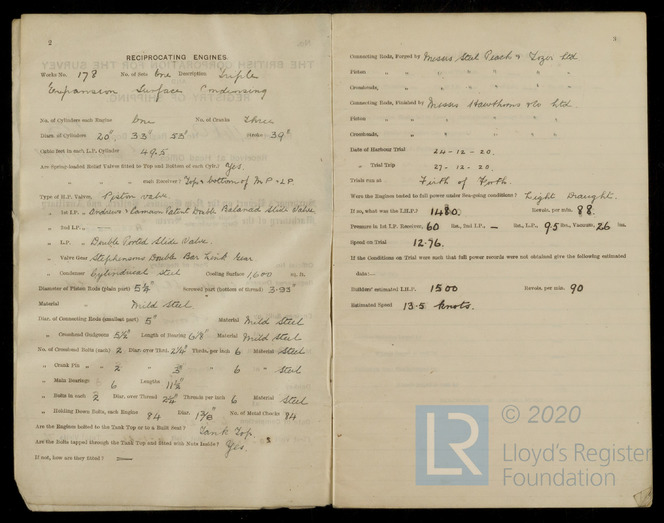 2
RECIPROCATING ENGINES.
Works No. 178 No. of Sets One Description Triple
Expansion Surface Condensing
No. of Cylinders each Engine One No. of Cranks Three
Diars. of Cylinders 20" 33" 53" Stroke 39"
Cubic feet in each L.P. Cylinder 49.5
Are Spring-loaded Relief Valves fitted to Top and Bottom of each Cylr.? Yes.
" " each Receiver? Top & bottom of M.P & L.P
Type of H.P. Valves, Piston valve
" 1st I.P. " Andrews & Cameron Patent Double Balanced Slide Valve
" 2nd I.P. " —
" L.P. " Double Ported Slide Valve.
" Valve Gear Stephensons Double Bar Link Gear
" Condenser Cylindrical Steel Cooling Surface 1600 sq. ft.
Diameter of Piston Rods (plain part) 5¼" Screwed part (bottom of thread) 3.93"
Material Mild Steel
Diar. of Connecting Rods (smallest part) 5" Material Mild Steel
" Crosshead Gudgeons 5½" Length of Bearing 6⅛" Material Mild Steel
No. of Crosshead Bolts (each) 2 Diar. over Thrd. 2¼" Thrds. per inch 6 Material Steel
" Crank Pin " " 2 " 3" " 6 " Steel
" Main Bearings 6 Lengths 11½"
" Bolts in each 2 Diar. over Thread 2¾" Threads per inch 6 Material Steel
" Holding Down Bolts, each Engine 84 Diar. 1⅜" No. of Metal Chocks 84
Are the Engines bolted to the Tank Top or to a Built Seat? Tank Top.
Are the Bolts tapped through the Tank Top and fitted with Nuts Inside? Yes.
If not, how are they fitted? —
3
Connecting Rods, Forged by Messrs Steel Peach & Tozer Ltd
Piston " " " " " "
Crossheads, " " " " "
Connecting Rods, Finished by Messrs Hawthorns & Co Ltd.
Piston " " " " "
Crossheads, " " " "
Date of Harbour Trial 24-12-20.
" Trial Trip 27-12-20.
Trials run at Firth of Forth.
Were the Engines tested to full power under Sea-going conditions? Light Draught.
If so, what was the I.H.P.? 1480. Revols. per min. 88.
Pressure in 1st I.P. Receiver, 60 lbs., 2nd I.P. — lbs., L.P., 9.5 lbs., Vacuum, 26 ins.
Speed on Trial 12.76.
If the Conditions on Trial were such that full power records were not obtained give the following estimated
data:—
Builders' estimated I.H.P. 1500 Revols. per min. 90
Estimated Speed 13.5 knots.
LR
© 2020
Lloyd's Register
Foundation